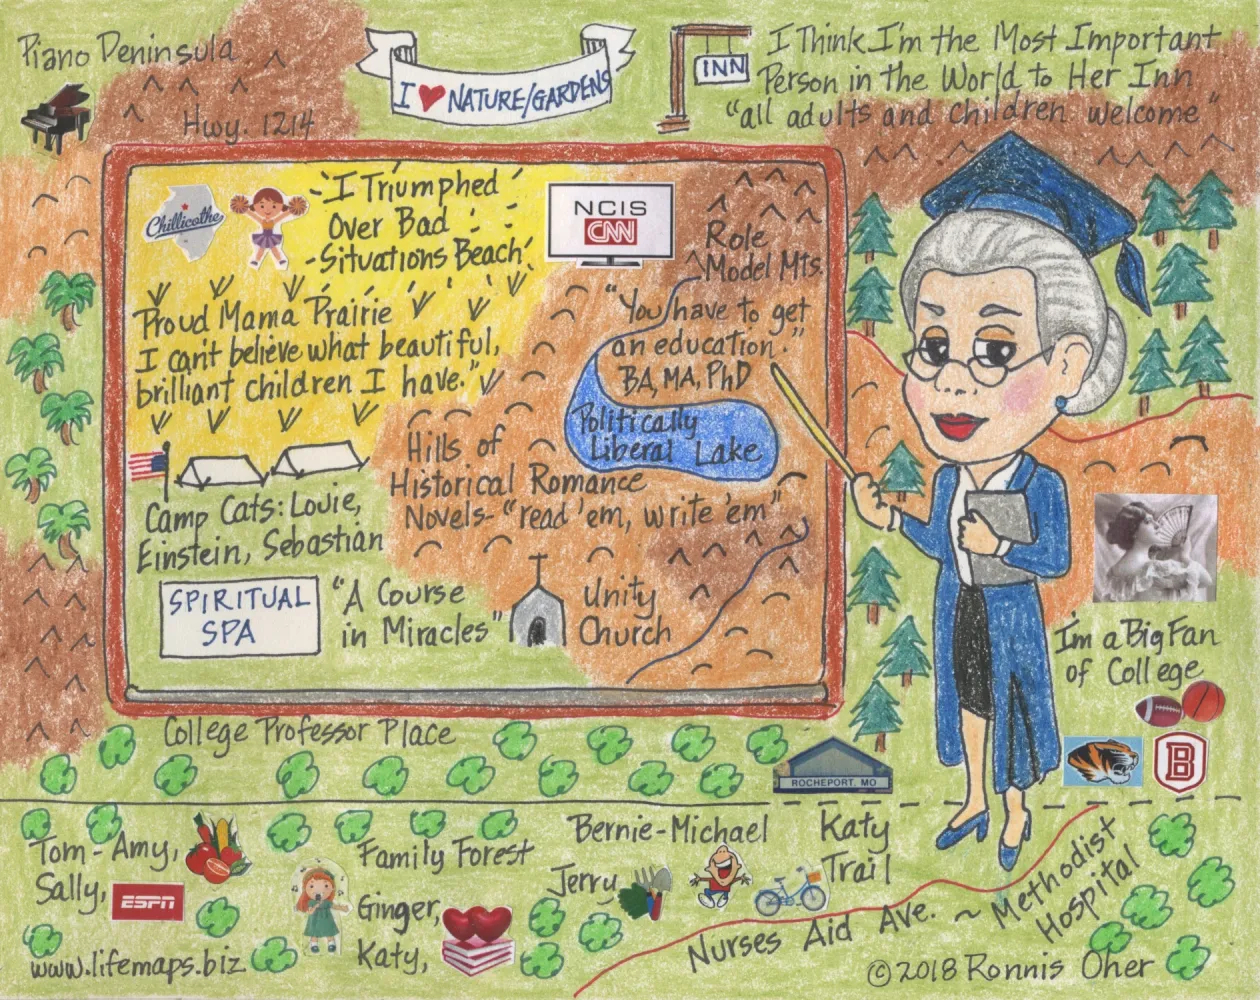 Piano Deninsula
Hwy. 1214
I ♥ NATURE/GARDENS
INN
I Think I'm the Most Important
Person in the World to Her Inn
"all adults and children welcome"
Chillicothe
I Triumphed
Over Bad
Situations Beach
NCIS
CNN
Role
Model Mts.
"You have to get
an education."
BA, MA, PhD
Proud Mama Prairie
I can't believe what beautiful,
brilliant children I have."
Politically
Liberal Lake
Hills of
Historical Romance
Novels-"read 'em, write 'em"
Camp Cats: Louie,
Einstein, Sebastian
SPIRITUAL
SPA
"A Course
in Miracles"
Unity
Church
I'm a Big Fan
of College
B
College Professor Place
ROCHEPORT, MO
Tom-Amy,
Sally,
ESPN
Family Forest
Ginger,
Katy,
Bernie-Michael
Jerry
Katy
Trail
Nurses Aid Ave. ~ Methodist
Hospital
www.lifemaps.biz
©2018 Ronnis Oher